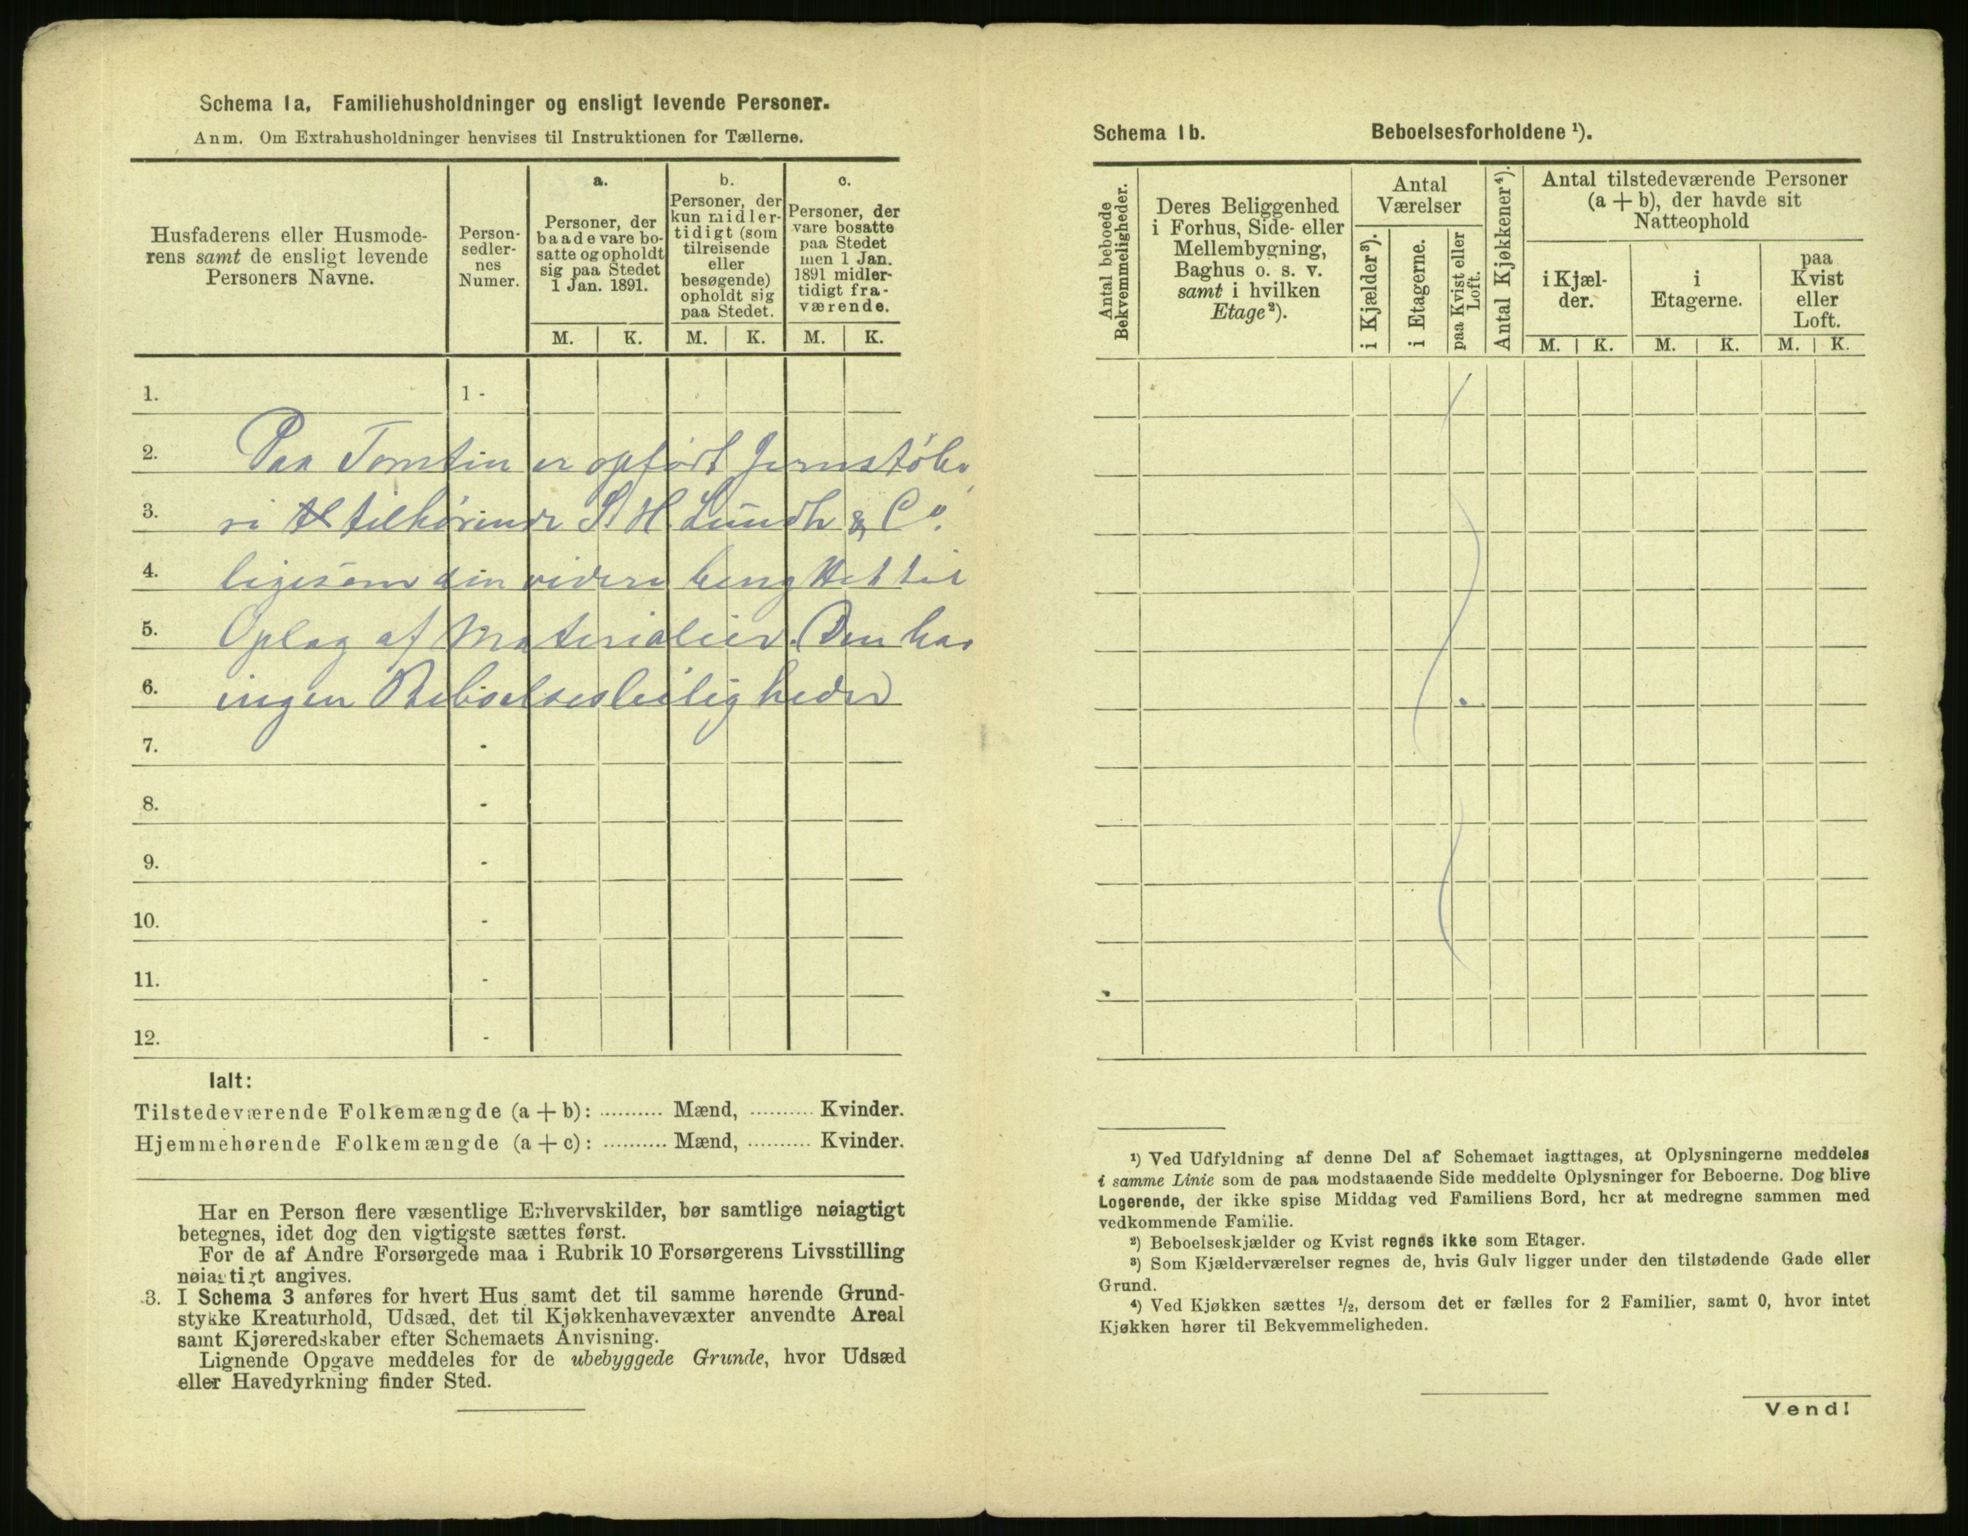 Schema 1a. Familiehusholdninger og ensligt levende Personer.
Anm. Om Extrahusholdninger henvises til Instruktionen for Tællerne.
Husfaderens eller Husmode-
rens samt de ensligt levende
Personers Navne.
Person-
sedler-
nes
Numer.
a.
Personer, der
baade vare bo-
satte og opholdt
sig paa Stedet
1 Jan. 1891.
b.
Personer, der
kun midler-
tidigt (som
tilreisende
eller
besøgende)
opholdt sig
paa Stedet.
c.
Personer, der
vare bosatte
paa Stedet
men 1 Jan.
1891 midler-
tidigt fra-
værende.
M. K. M. K. M. K.
1. 1 -
2. Paa Tomten er opført Jernstøbe
3. ri tilhørende S. H. Lundh & Co.
4. ligesom den videre benyttet til
5. Oplag af Materialier. Den har
6. ingen Beboelsesleiligheder
7. -
8. -
9. -
10. -
11. -
12. -
Ialt:
Tilstedeværende Folkemængde (a + b): .......... Mænd, .......... Kvinder.
Hjemmehørende Folkemængde (a + c): .......... Mænd, .......... Kvinder.
Har en Person flere væsentlige Erhvervskilder, bør samtlige nøiagtigt
betegnes, idet dog den vigtigste sættes først.
For de af Andre Forsørgede maa i Rubrik 10 Forsørgerens Livsstilling
nøiagtigt angives.
3. I Schema 3 anføres for hvert Hus samt det til samme hørende Grund-
stykke Kreaturhold, Udsæd, det til Kjøkkenhavevæxter anvendte Areal
samt Kjøreredskaber efter Schemaets Anvisning.
Lignende Opgave meddeles for de ubebyggede Grunde, hvor Udsæd
eller Havedyrkning finder Sted.
Schema 1b. Beboelsesforholdene ¹).
Antal beboede
Bekvemmeligheder.
Deres Beliggenhed
i Forhus, Side- eller
Mellembygning,
Baghus o. s. v.
samt i hvilken
Etage²).
Antal
Værelser
i Kjælder³).
i Etagerne.
paa Kvist eller
Loft.
Antal Kjøkkener⁴).
Antal tilstedeværende Personer
(a + b), der havde sit
Natteophold
i Kjæl-
der.
i
Etagerne.
paa
Kvist
eller
Loft.
M. K. M. K. M. K.
¹) Ved Udfyldning af denne Del af Schemaet iagttages, at Oplysningerne meddeles
i samme Linie som de paa modstaaende Side meddelte Oplysninger for Beboerne. Dog blive
Logerende, der ikke spise Middag ved Familiens Bord, her at medregne sammen med
vedkommende Familie.
²) Beboelseskjælder og Kvist regnes ikke som Etager.
³) Som Kjælderværelser regnes de, hvis Gulv ligger under den tilstødende Gade eller
Grund.
⁴) Ved Kjøkken sættes ½, dersom det er fælles for 2 Familier, samt 0, hvor intet
Kjøkken hører til Bekvemmeligheden.
Vend!